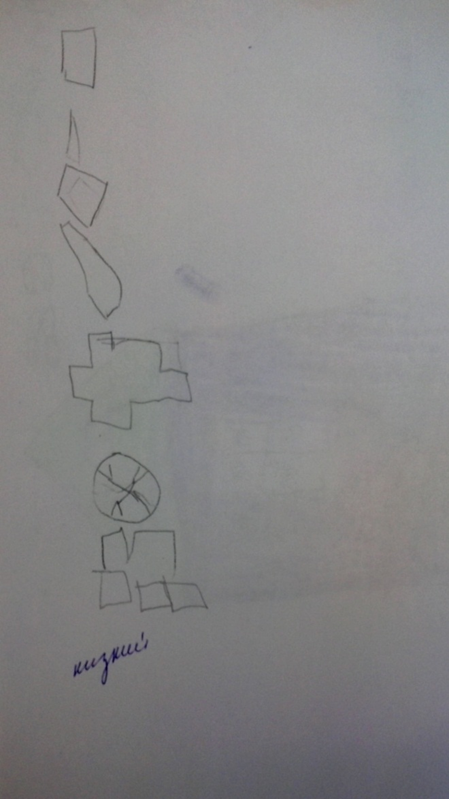 низкий